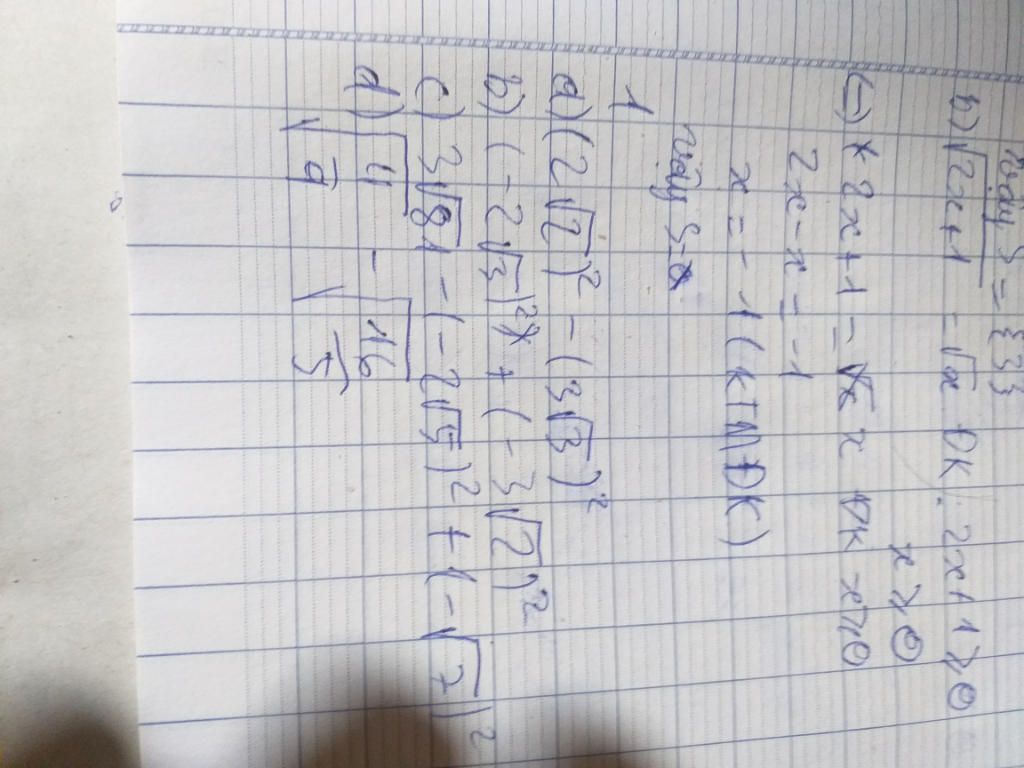 Vậy S = {3}
b) √2x+1 = √x ĐK: 2x+1 ≥ 0
x ≥ 0
(-) * 2x+1 = x ĐK x ≥ 0
2x - x = -1
x = -1 (KTMĐK)
Vậy S
1
a) (2√2)² - (3√3)²
b) (-2√3)² + (-3√2)²
c) 3√81 - (-2√5)² + (-√7)²
d) √4/9 - √16/5